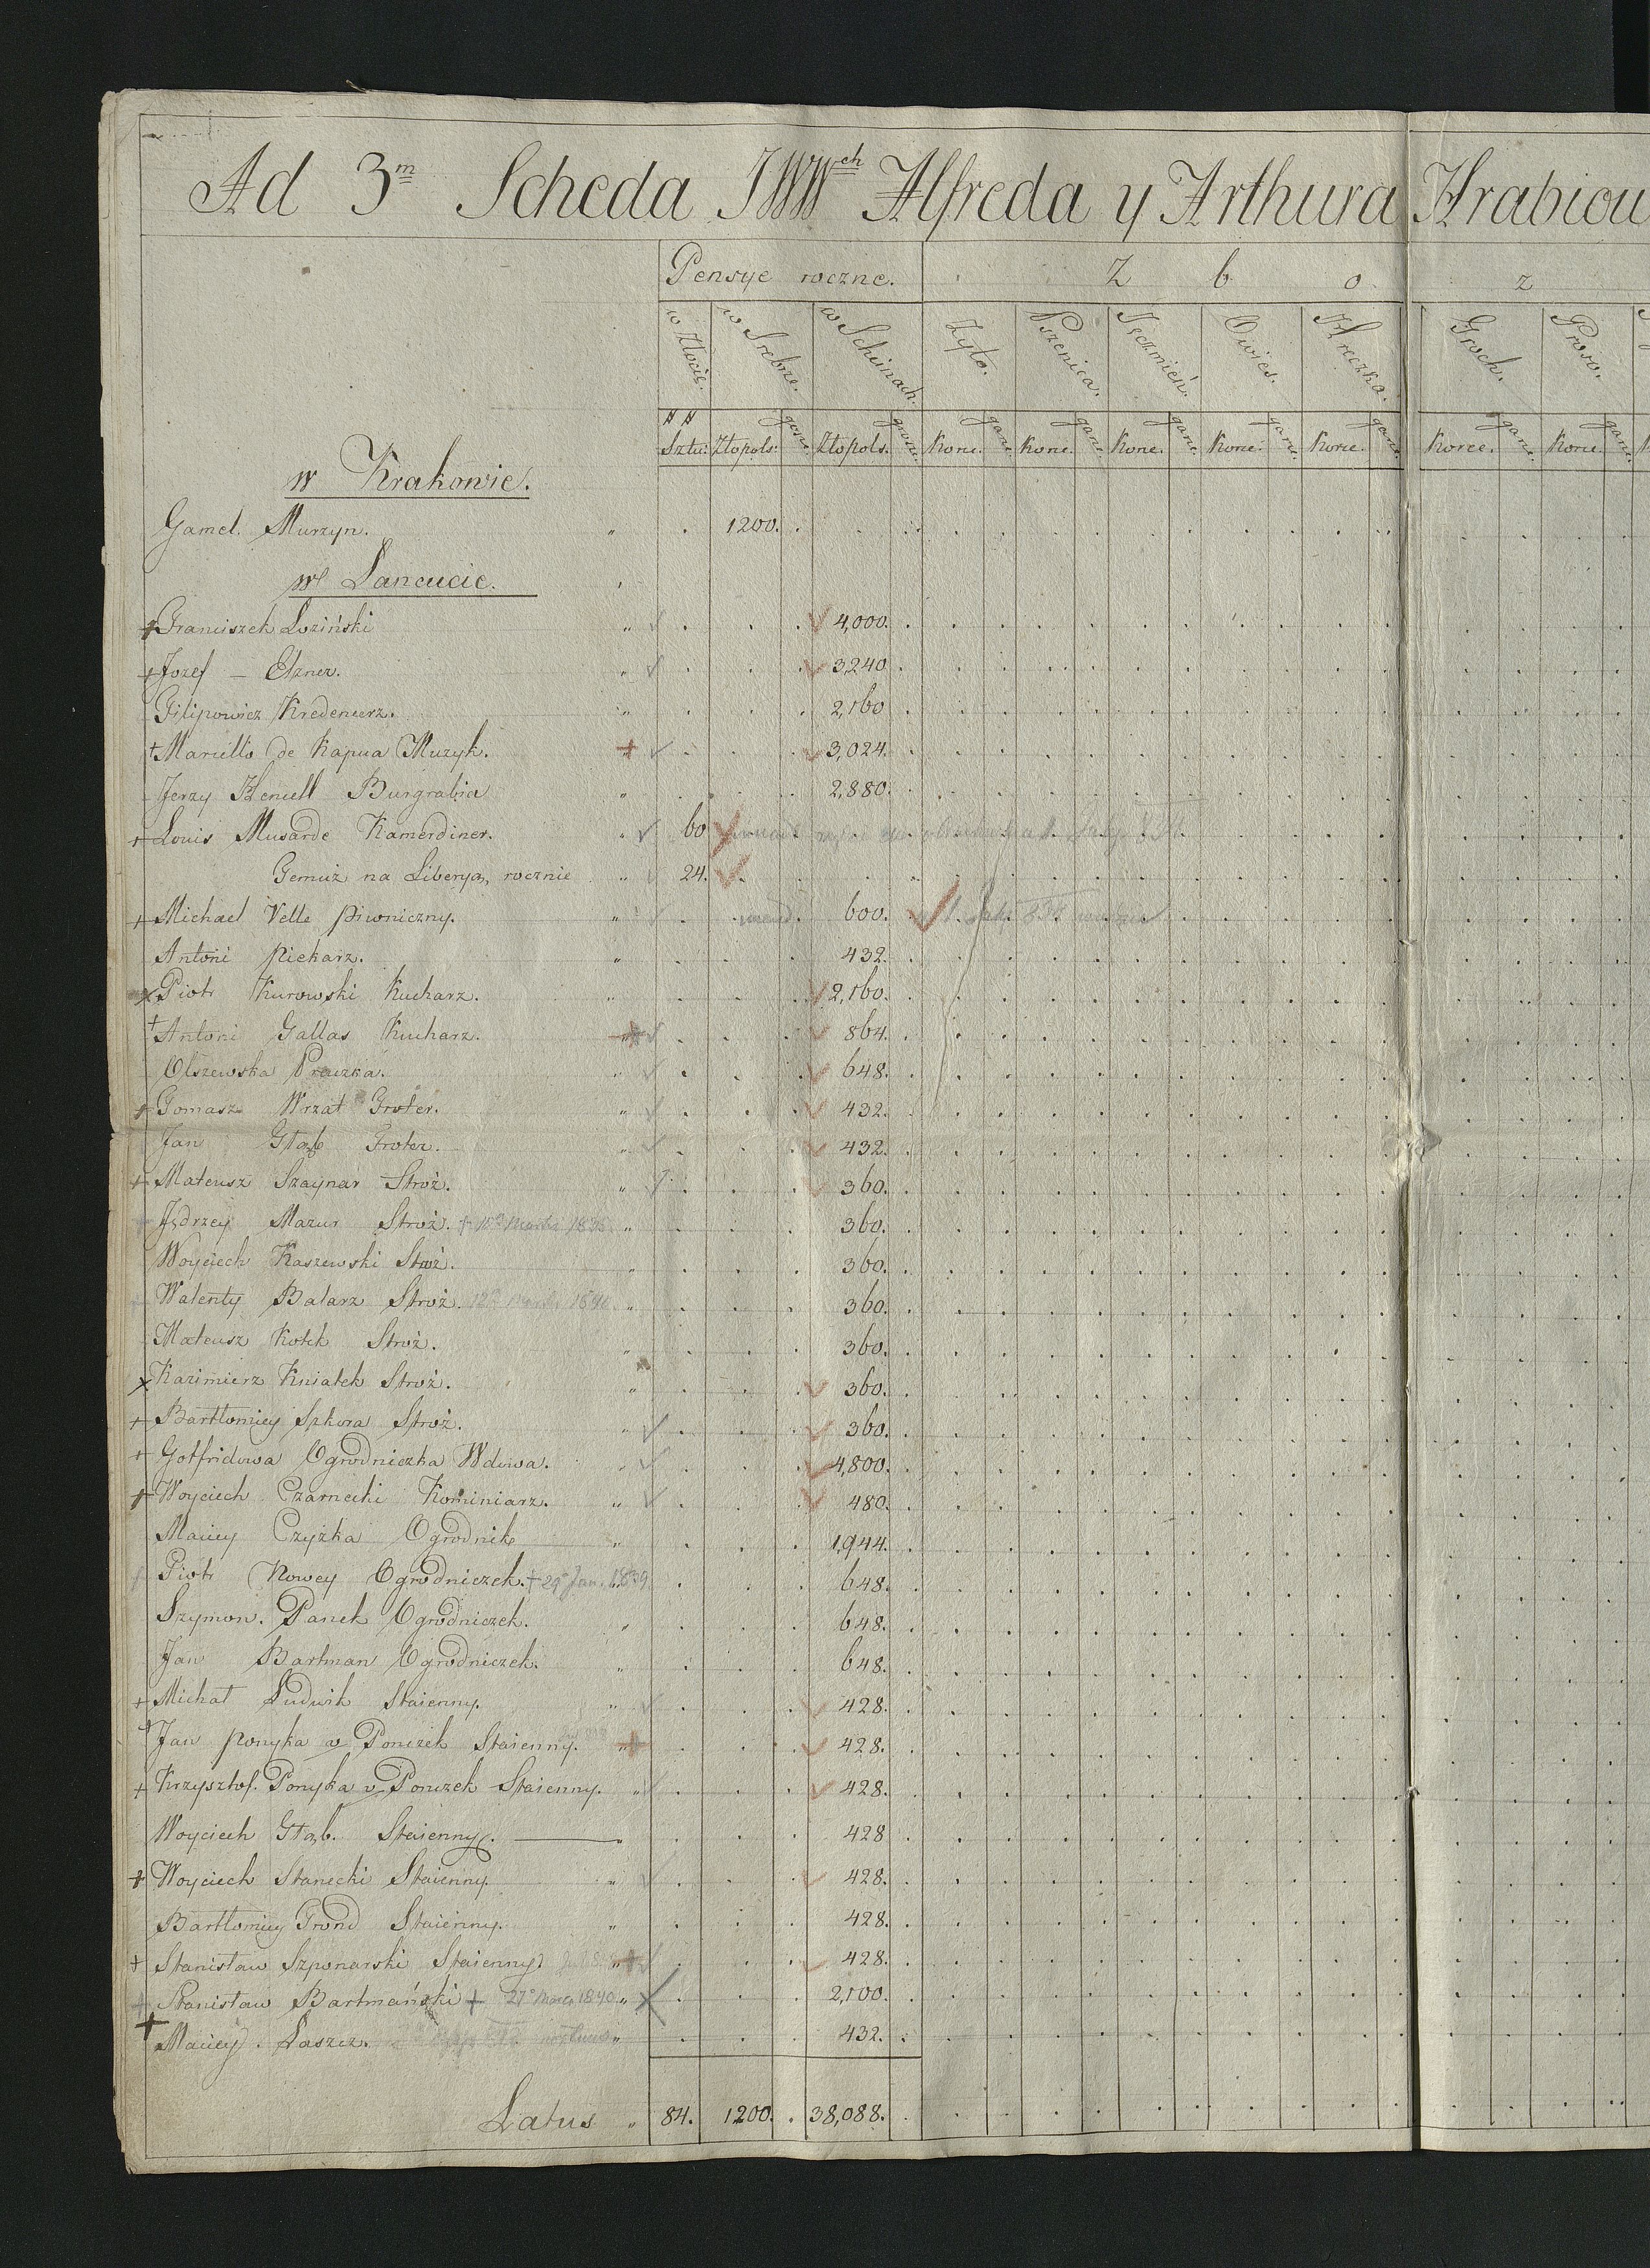 Ad 3m Scheda JWWch Alfreda y Arthura Hrabiow
Pensye roczne. Z b o z
w Złocie. w Srebrze. w Schinach. Zyto. Pszenica. Jęczmień. Owies. Hreczka. Groch. Proso.
## Sztu: Złopols: grosz. Złopols. grosz. Korce. garn. Korce. garn. Korce. garn. Korce. garn. Korce. garn. Korce. garn. Korce. garn.
w Krakowie.
Gamel. Murzyn. " 1200.
w Lancucie.
+ Franciszek Loziński " 4,000.
+ Jozef – Elsner. " 3,240
Filipowicz Kredencerz. " 2,160
+ Marcello de Kapua Muzyk. + 3,024.
Jerzy Hencell Burgrabia " 2,880.
+ Louis Musarde Kamerdiner. " 60
Temuż na Liberyą, rocznie " 24.
+ Michael Velle piwniczny. " 600.
Antoni piekarz. " 432.
x Piotr Kurowski Kucharz. " 2,160.
+ Antoni Gallas Kucharz. + 864.
Olszewska Praczka. " 648.
+ Tomasz Wrzat Froter. " 432.
Jan Głąb Froter. " 432.
+ Mateusz Szaynar Stroż. " 360.
Jędrzey Mazur Stroż. + 10a Martii 1838 " 360.
Woyciech Kaszewski Stroż. " 360.
Walenty Balarz Stroż. 1840 " 360.
Mateusz Kotek Stroż. " 360.
x Kazimierz Kuiatek Stroż. " 360.
+ Bartłomiey Szkura Stroż. 360.
+ Gotfridowa Ogrodniczka Wdowa. " 4,800.
+ Woyciech Czarnecki Kominiarz. " 480.
Maciey Czyżka Ogrodnik " 1,944.
Piotr Nowey Ogrodniczek. + 29a Jan. 1839 648.
Szymon. Panek Ogrodniczek. " 648.
Jan Bartman Ogrodniczek. " 648.
+ Michał Ludwik Staienny. " 428.
+ Jan Ponyka v Ponczek Staienny. + 428.
+ Krzysztof. Ponyka v Ponczek Staienny. " 428.
Woyciech Głąb. Staienny. " 428
+ Woyciech Stanecki Staienny. " 428.
Bartłomiey Frond Staienny. " 428.
+ Stanisław Szponarski Staienny. + 428.
+ Stanisław Bartmański + 27a Marca 1840 " x 2,100.
+ Maciey. Łaszcz. " 432.
Latus " 84. 1200. 38,088.